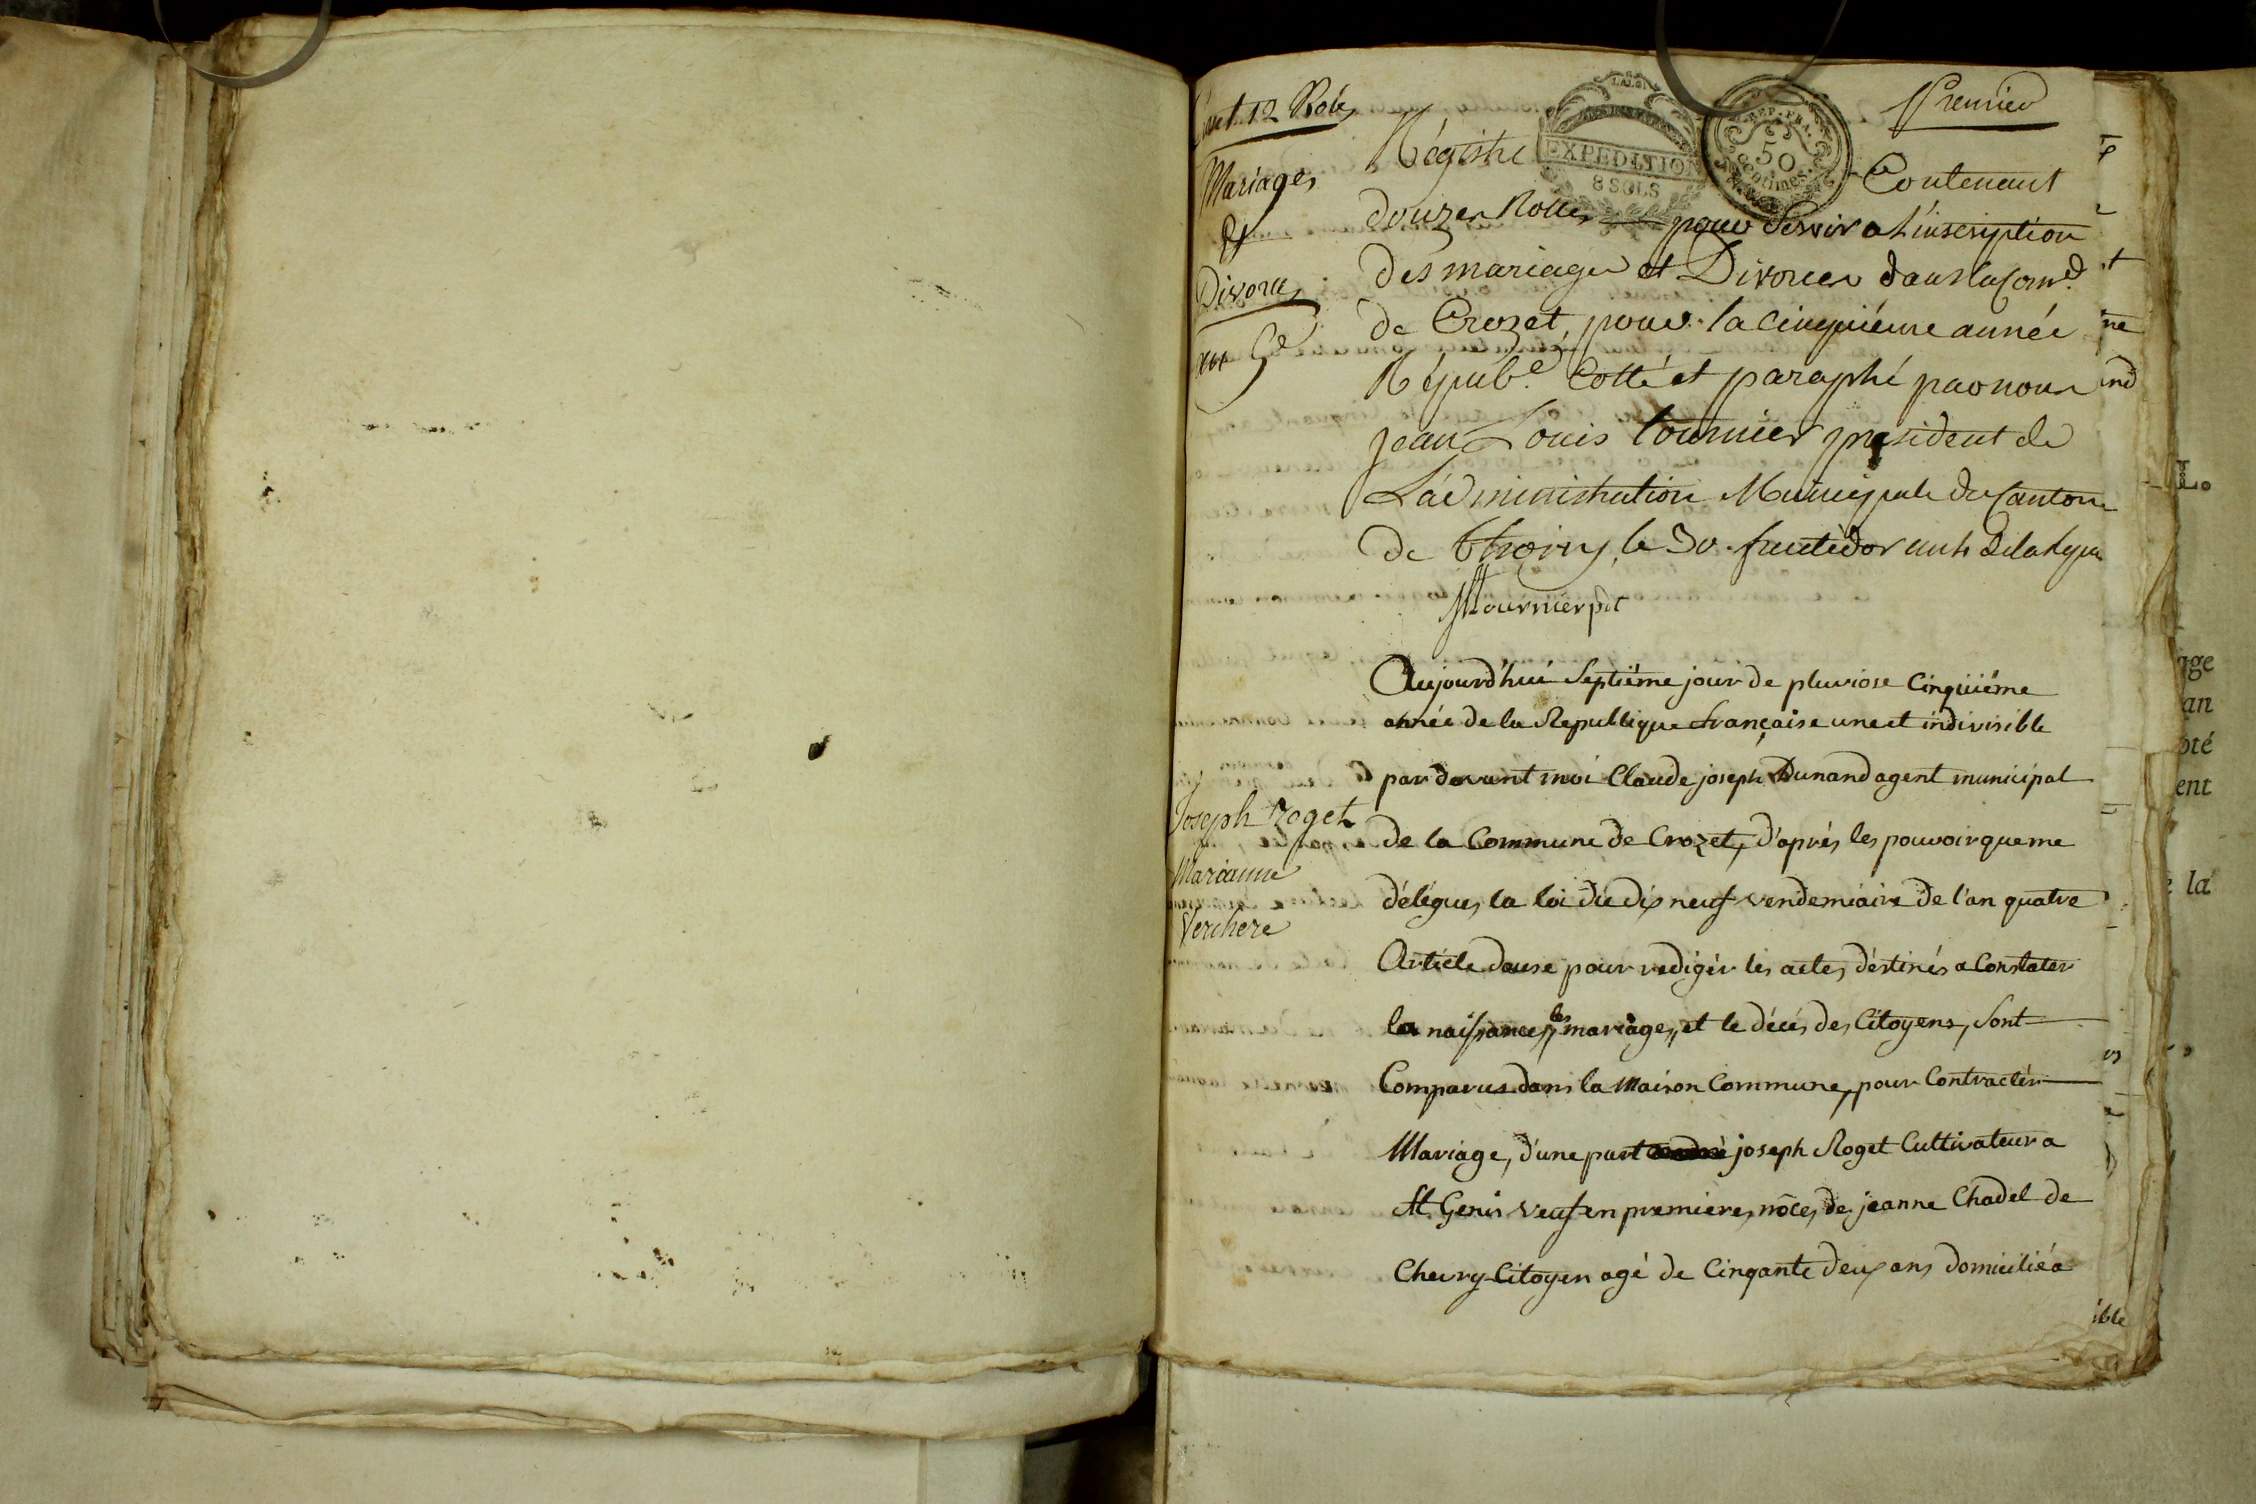 Cont. 12 Roles
Premier
Mariages
et
Divorces
an 5e
Régistre Contenant
EXPEDITION
8 SOLS
REP. FRA.
50
Centimes.
douzes Rolles pour servir a L'inscription
des mariages et Divorces dans la Comne
de Crozet, pour la cinquiéme année
Républe. Cotté et paraphé par nous
jean Louis tournier president de
L'administration Municipale du Canton
de thoiry, le 30 fructidor an 4 de la Repu
JLtournier pdt
Aujourd'hui septiéme jour de pluviose cinquiéme
année de la Republique française une et indivisible
par devant moi Claude joseph Dunand agent municipal
de la Commune de Crozet, d'aprés les pouvoir que me
délégues la loi du dix neuf vendemiaire de l'an quatre
Article douse pour redigér les actes déstinés a Constater
la naissances, les mariages, et le décés des Citoyens, sont
Comparus dans la Maison Commune, pour Contractér
Mariage, d'une part joseph Roget Cultivateur a
St Genis veuf en premieres nôces de jeanne Chadel de
Chevry Citoyen agé de Cinqante deux ans domicilié a
Joseph Roget
Marianne
Verchere
ne
ind
ible
age
an
oté
ent
e la